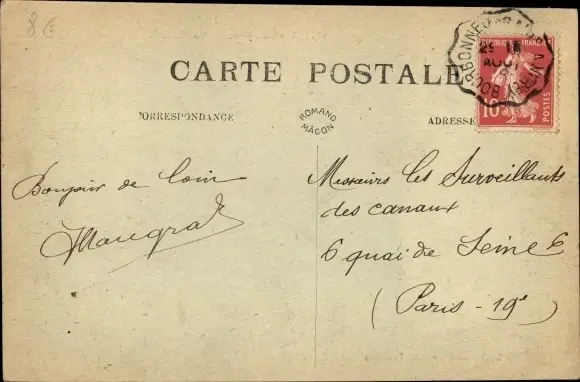 8 €
CARTE POSTALE
CORRESPONDANCE
ROMAND
MÂCON
ADRESSE
REPUBLIQUE FRANÇAISE
10
POSTES
AOUT
Bonjour de loin
Messieurs les Surveillants
des canaux
6 quai de Seine 6
( Paris - 19e )